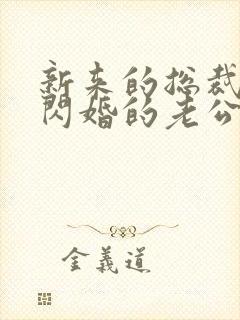 新来的总裁
闪婚的老公
金義道